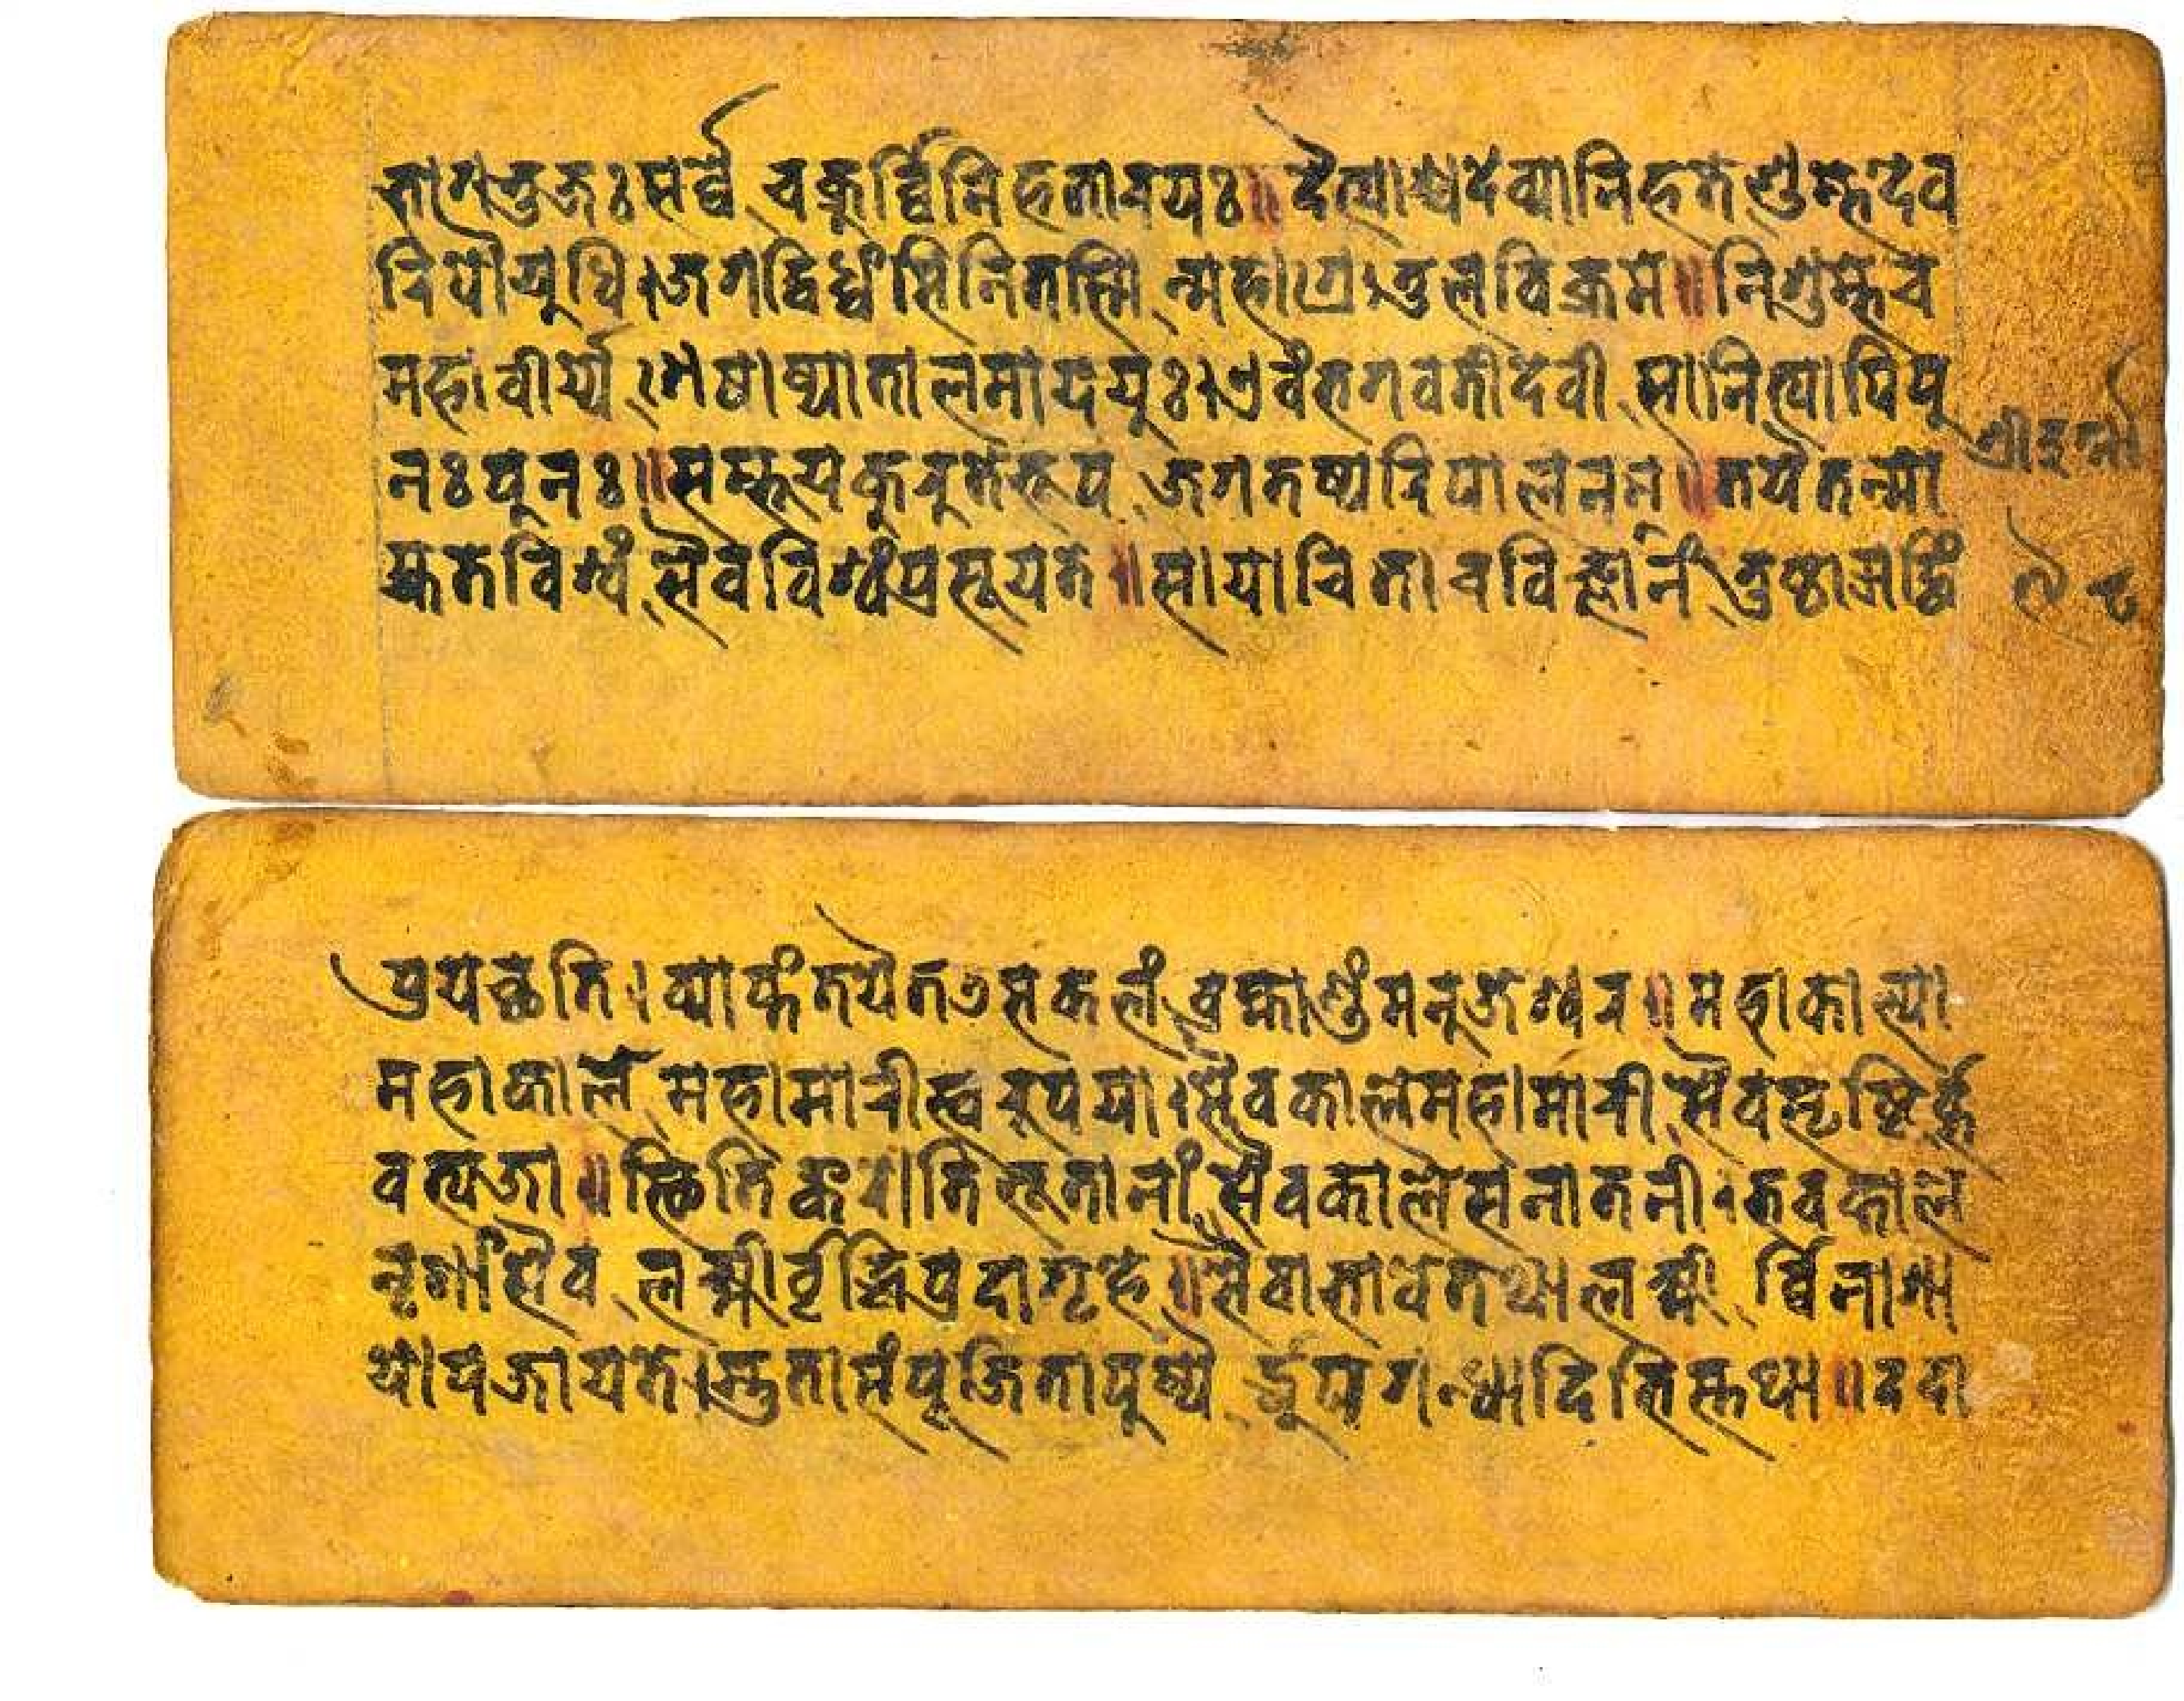 भागभुजः सर्व्वे चक्रुर्व्विनिहतारयः॥ दैत्याश्च देव्या निहते शुम्भे देव
रिपौ युधि। जगद्विध्वंसिनि तस्मिन्महोग्रे ऽतुलविक्रमे॥ निशुम्भे च
महावीर्य्ये शेषाष्पातालमाययुः। एवं भगवती देवी सा नित्यापि पु
नः पुनः॥ सम्भूय कुरुते भूप जगतष्परिपालनं॥ तयैतन्मो
ह्यते विश्वं सैव विश्वं प्रसूयते॥ सा याचिता च विज्ञानं तुष्टा ऋद्धिं
श्रीदुर्गा
प्रयच्छति। व्याप्तं तयैतत्सकलं ब्रह्माण्डं मनुजेश्वर॥ महाकाल्या
महाकाले महामारीस्वरूपया। सैव काले महामारी सैव सृष्टिर्भ
वत्यजा॥ स्थितिं करोति भूतानां सैव काले सनातनी। भवकाले
नृणां सैव लक्ष्मीर्वृद्धिप्रदा गृहे॥ सैवाभावे तथालक्ष्मीर्व्विनाशा
योपजायते। स्तुता संपूजिता पुष्पैर्द्धूपगन्धादिभिस्तथा॥ ददा